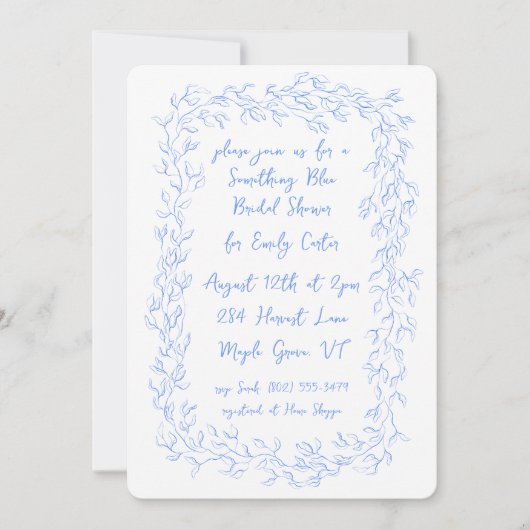 please join us for a
Something Blue
Bridal Shower
for Emily Carter
August 12th at 2pm
284 Harvest Lane
Maple Grove, VT
rsvp Sarah (802) 555-3479
registered at Home Shoppe